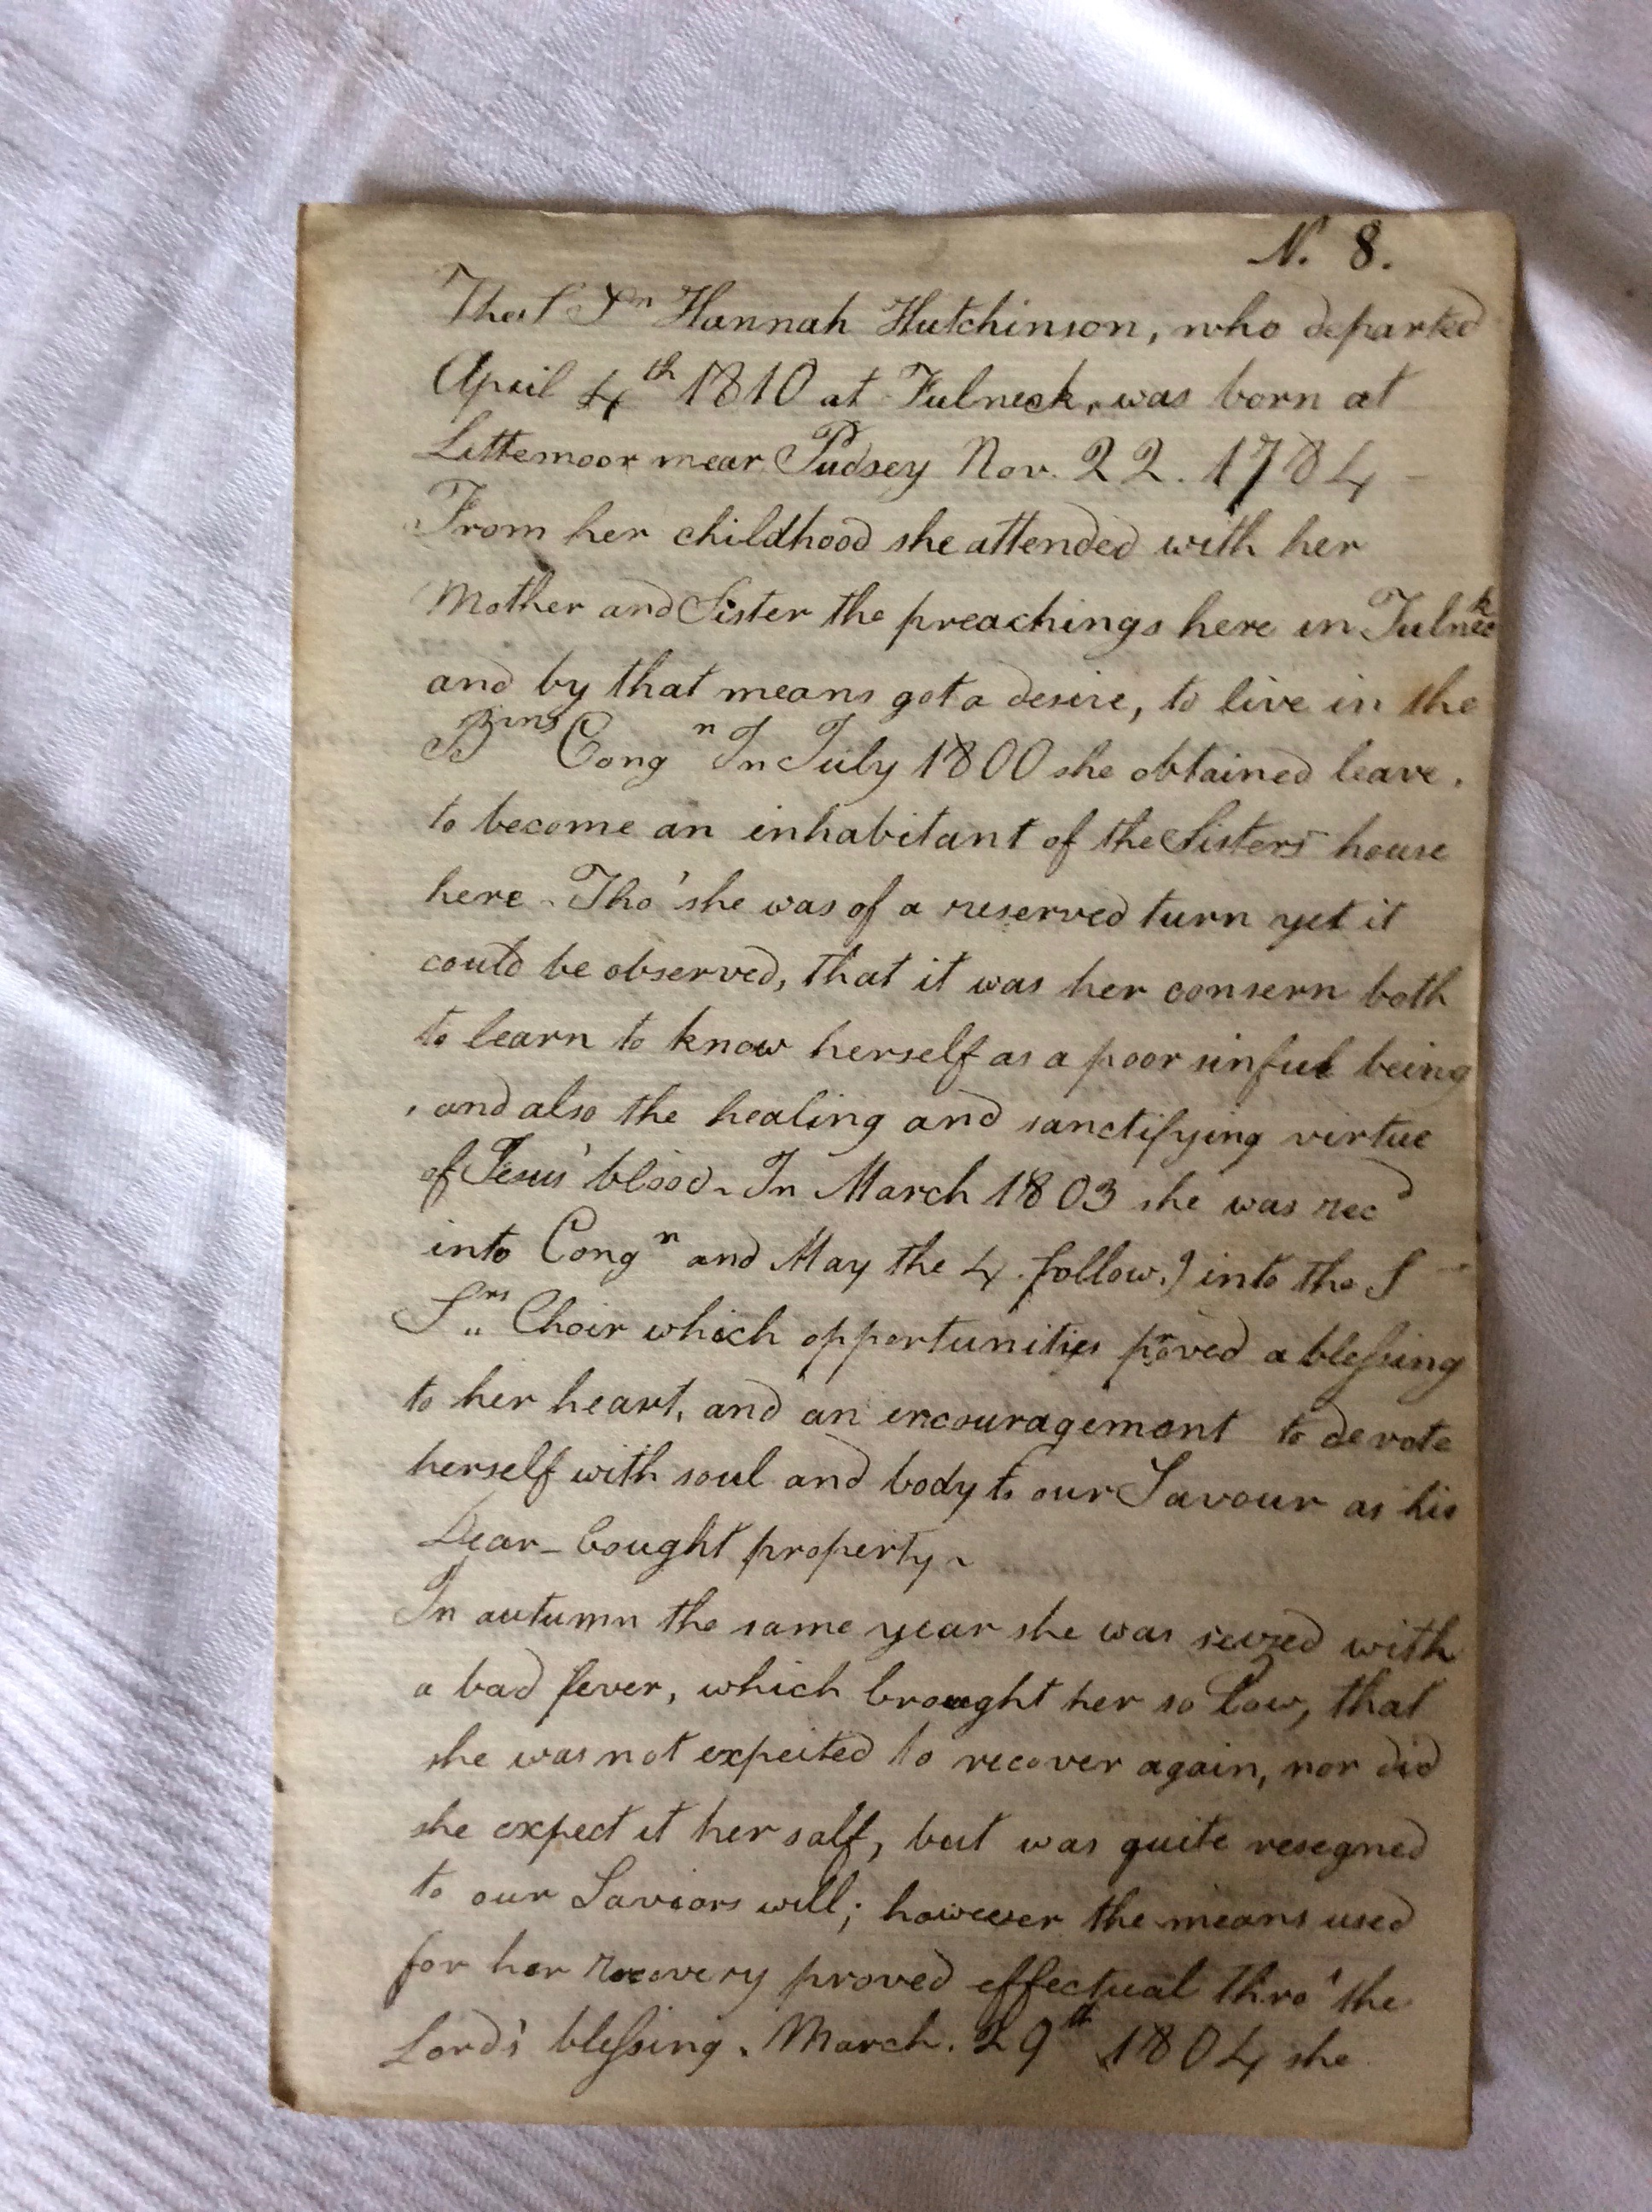 N. 8.
The S Srn Hannah Hutchinson, who departed
April 4th 1810 at Fulneck, was born at
Littemoor near Pudsey Nov. 22. 1784 -
From her childhood she attended with her
Mother and Sister the preachings here in Fulneck
and by that means got a desire, to live in the
Brns Congn In July 1800 she obtained leave.
to become an inhabitant of the Sisters house
here - Tho' she was of a reserved turn yet it
could be observed, that it was her consern both
to learn to know herself as a poor sinful being
, and also the healing and sanctifying virtue
of Jesus' blood - In March 1803 she was recd
into Congn and May the 4. follow.g into the S
Srs Choir which opportunities proved a blessing
to her heart, and an encouragement to devote
herself with soul and body to our Savour as his
Dear-bought property -
In autumn the same year she was seized with
a bad fever, which brought her so low, that
she was not expected to recover again, nor did
she expect it her self, but was quite resegned
to our Saviors will; however the means used
for her recovery proved effectual thro' the
Lord's blessing. March. 29th 1804 she